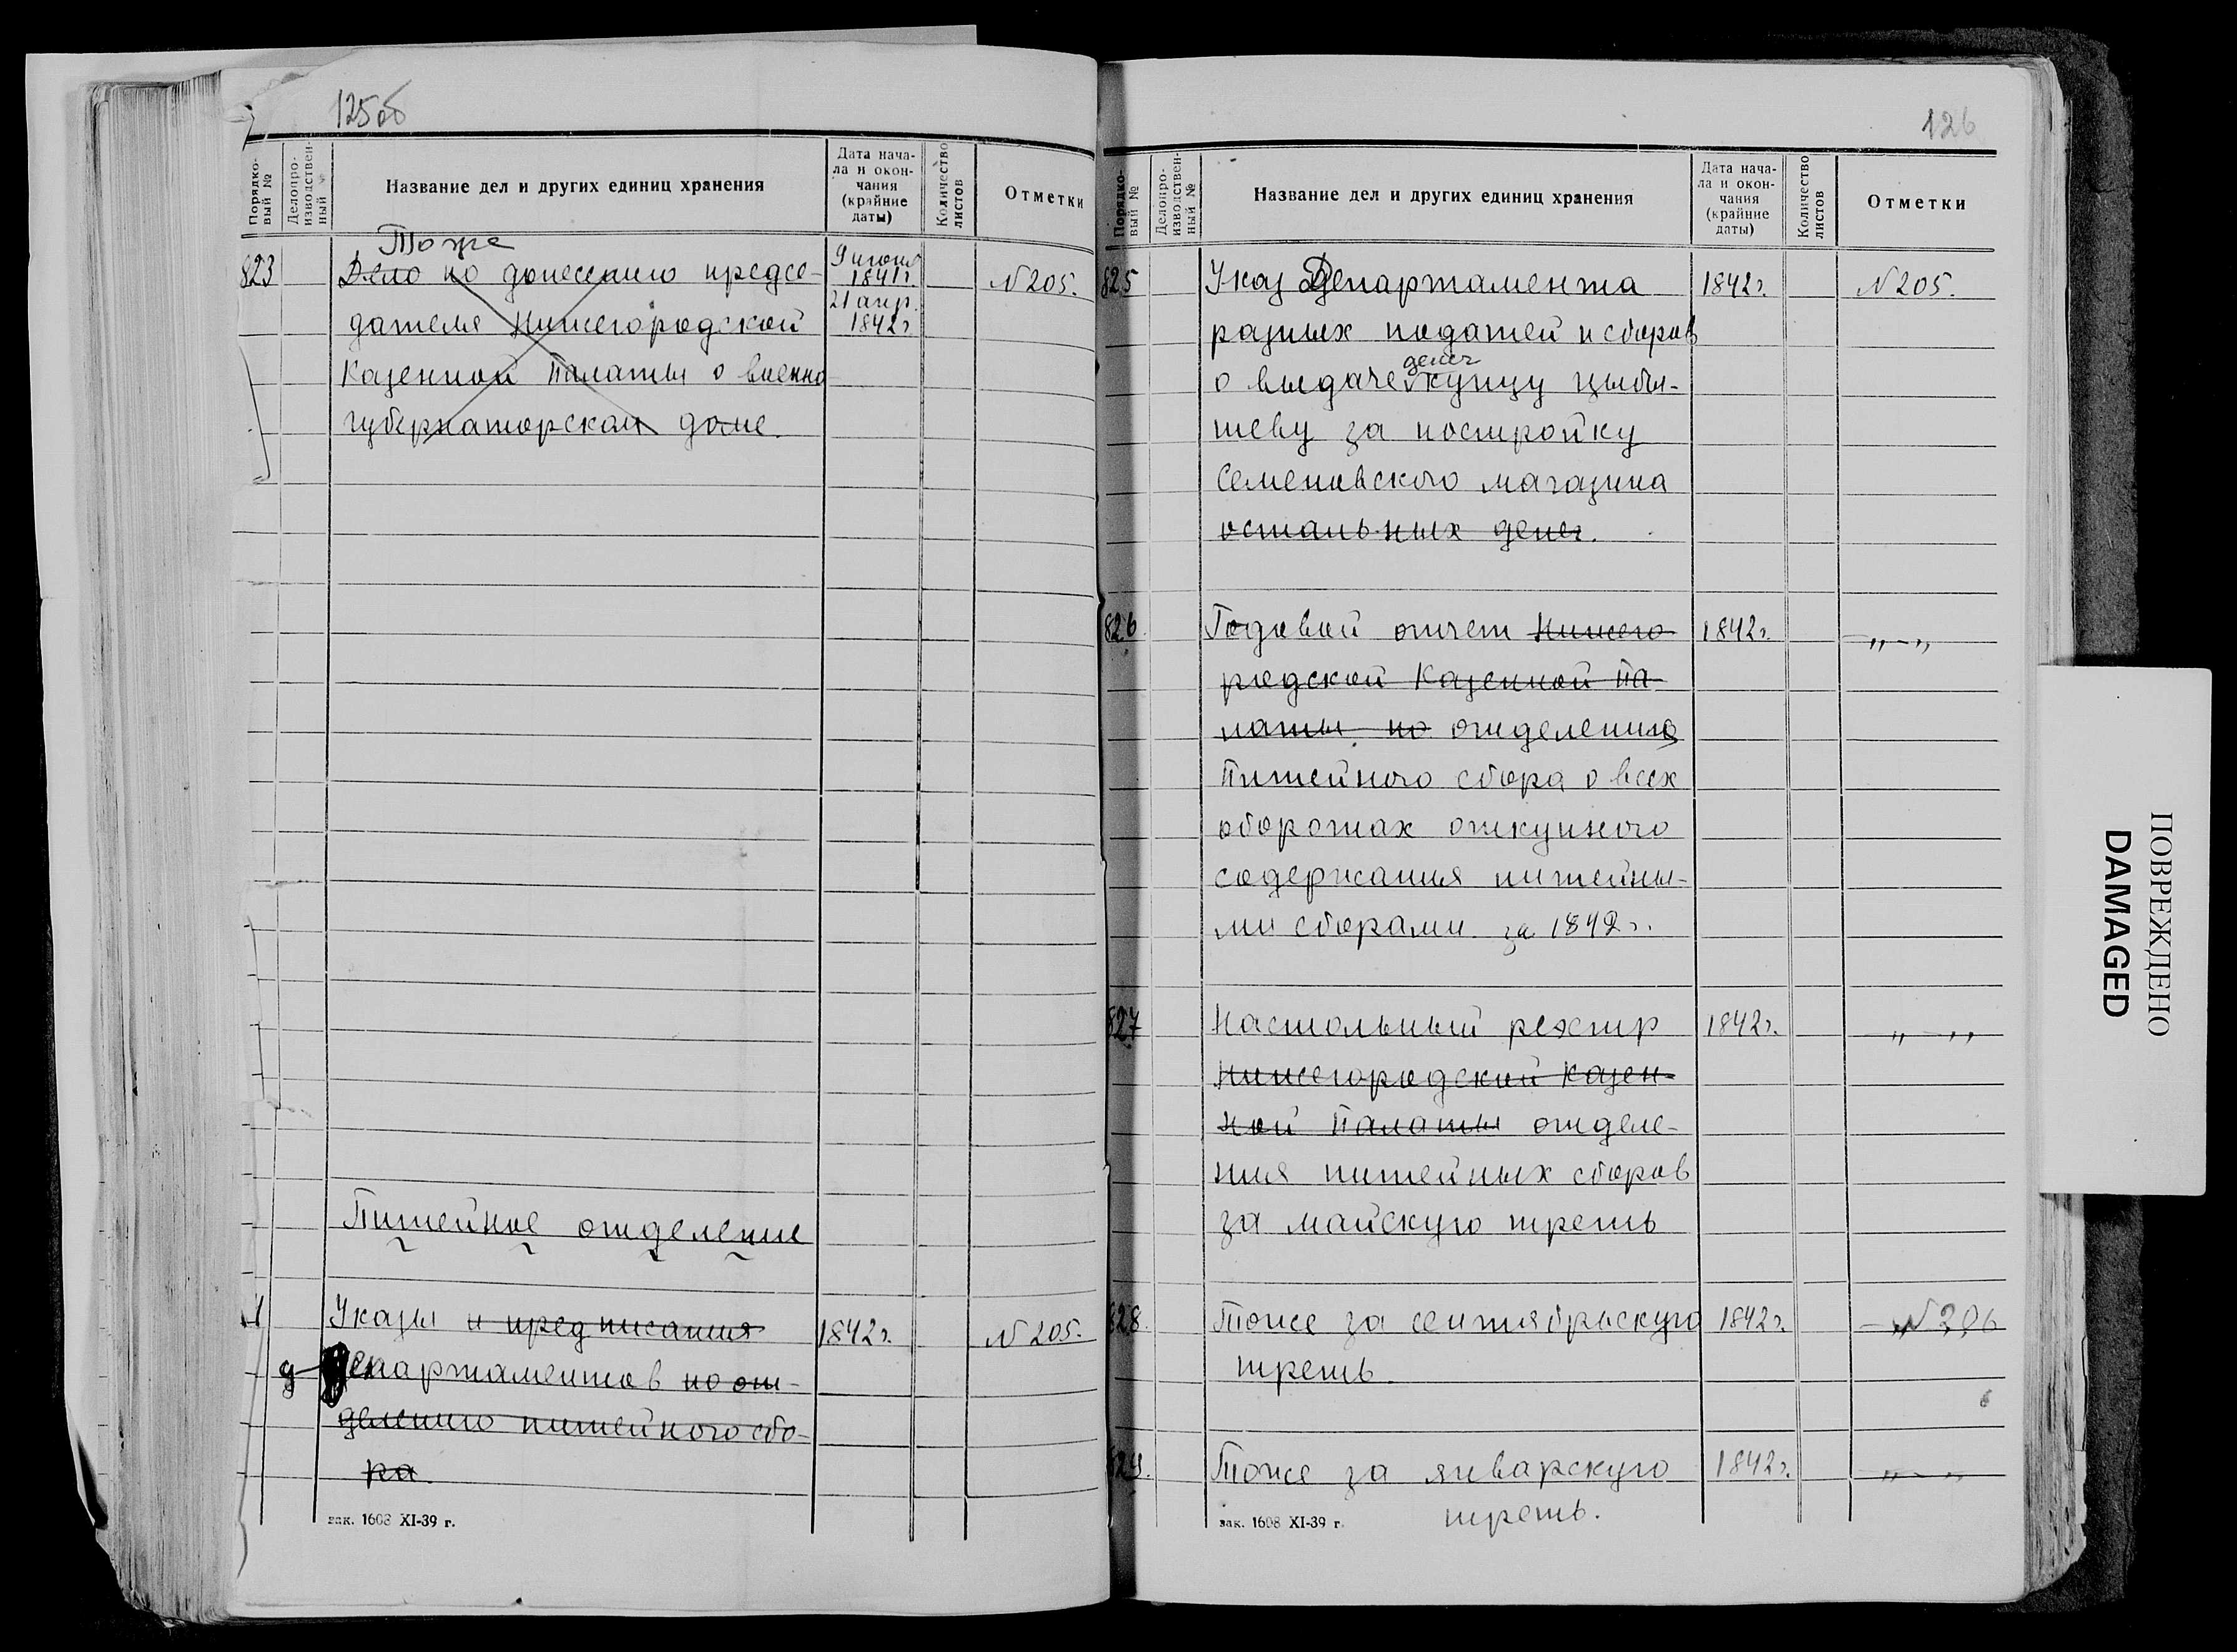 125об
Порядко-
вый №
Делопро-
изводствен-
ный №
Название дел и других единиц хранения
Дата нача-
ла и окон-
чания
(крайние
даты)
Количество
листов
Отметки
Тоже
823 Дело по донесению предсе- 9 июня 1841г. №205.
дателя Нижегородской 21 апр. 1842г.
Казенной Палаты о военно
губернаторском доме.
Питейное отделение
Указы и предписания 1842г. №205.
департаментов по от-
делению питейного сбо-
ра.
зак. 1608 XI-39 г.
126
Порядко-
вый №
Делопро-
изводствен-
ный №
Название дел и других единиц хранения
Дата нача-
ла и окон-
чания
(крайние
даты)
Количество
листов
Отметки
825 Указ Департамента 1842г. №205.
разных податей и сборов
денег
о выдаче купцу Цыбы-
шеву за постройку
Семеновского магазина
остальных денег.
826 Годовой отчет Нижего 1842г. -„-„
родской Казенной Па-
латы по отделения
Питейного сбора о всех
оборотах откупного
содержания питейны-
ми сборами за 1842г.
827 Настольный реэстр 1842г. „-„
Нижегородской Казен-
ной Палаты отделе-
ния питейных сборов
за майскую треть
828. Тоже за сентябрьскую 1842г. №206
треть.
829. Тоже за январскую 1842г. „-„
треть.
зак. 1608 XI-39 г.
ПОВРЕЖДЕНО
DAMAGED